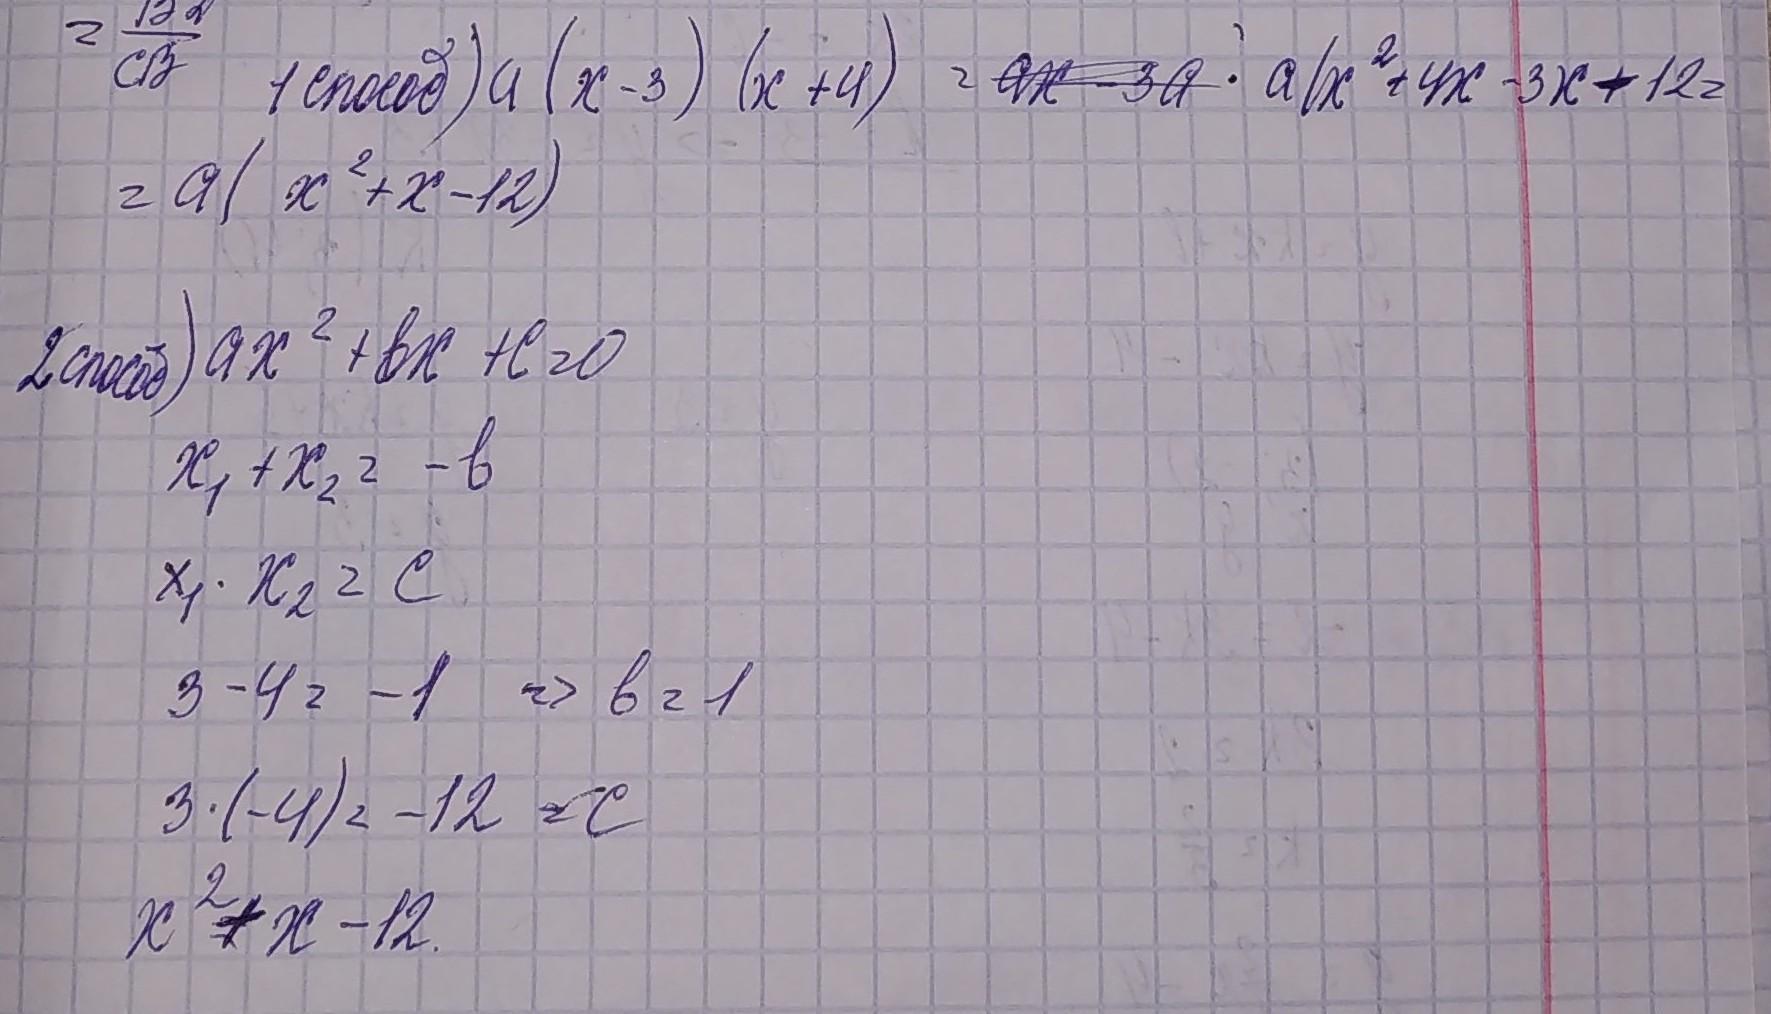 =
СВ
1 способ) a(x-3)(x+4) = ax - 3a · a(x²+4x-3x-12=
= a(x²+x-12)
2 способ) ax²+bx+c=0
x₁+x₂= -b
x₁·x₂=c
3-4= -1 => b=1
3·(-4)= -12 =c
x²+x-12.